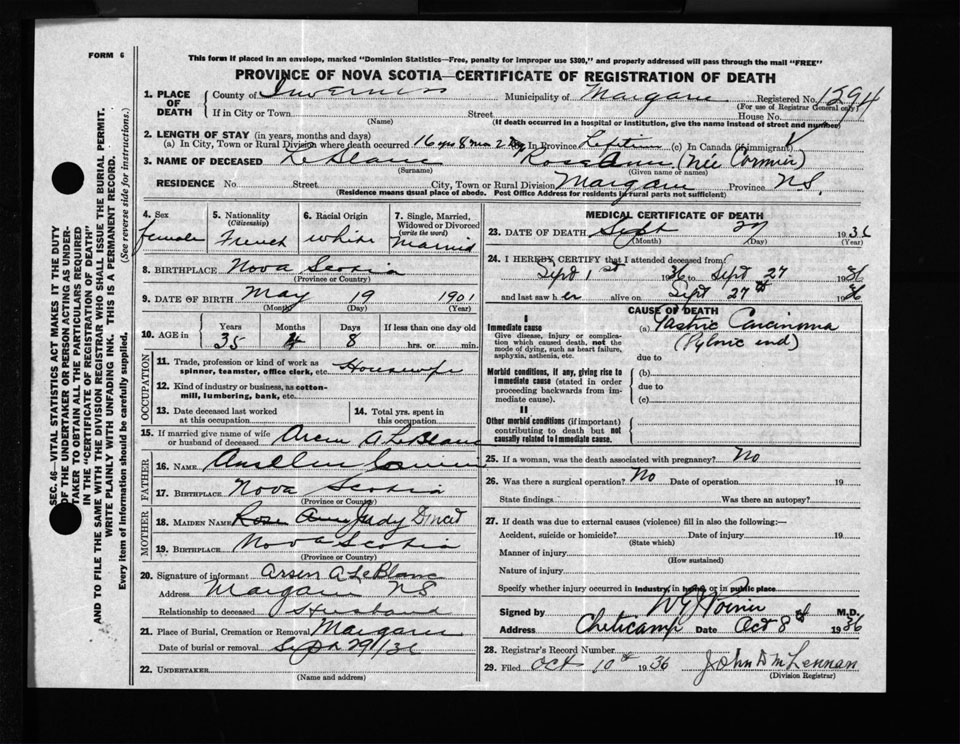 FORM 6
This form if placed in an envelope, marked "Dominion Statistics—Free, penalty for improper use $300," and properly addressed will pass through the mail "FREE"
PROVINCE OF NOVA SCOTIA—CERTIFICATE OF REGISTRATION OF DEATH
SEC. 46—VITAL STATISTICS ACT MAKES IT THE DUTY
OF THE UNDERTAKER OR PERSON ACTING AS UNDER-
TAKER TO OBTAIN ALL THE PARTICULARS REQUIRED
IN THE "CERTIFICATE OF REGISTRATION OF DEATH"
AND TO FILE THE SAME WITH THE DIVISION REGISTRAR WHO SHALL ISSUE THE BURIAL PERMIT.
WRITE PLAINLY WITH UNFADING INK. THIS IS A PERMANENT RECORD.
Every item of information should be carefully supplied. (See reverse side for instructions.)
1. PLACE OF DEATH
County of Inverness Municipality of Margaree Registered No. 1294
(For use of Registrar General only)
If in City or Town Street House No.
(Name) (If death occurred in a hospital or institution, give the name instead of street and number)
2. LENGTH OF STAY (in years, months and days)
(a) In City, Town or Rural Division where death occurred 16 yrs 8 mo 2 In Province Lifetime (c) In Canada (if immigrant)
3. NAME OF DECEASED LeBlanc Rose Anne (Née Cormier)
(Surname) (Given name or names)
RESIDENCE No. Street City, Town or Rural Division Margaree Province N.S.
(Residence means usual place of abode. Post Office Address for residents in rural parts not sufficient)
4. Sex
female
5. Nationality
(Citizenship)
French
6. Racial Origin
white
7. Single, Married, Widowed or Divorced
(write the word)
Married
8. BIRTHPLACE Nova Scotia
(Province or Country)
9. DATE OF BIRTH May 19 1901
(Month) (Day) (Year)
10. AGE in Years Months Days If less than one day old
35 4 8 hrs. or min.
OCCUPATION
11. Trade, profession or kind of work as
spinner, teamster, office clerk, etc. Housewife
12. Kind of industry or business, as cotton-
mill, lumbering, bank, etc.
13. Date deceased last worked
at this occupation
14. Total yrs. spent in
this occupation
15. If married give name of wife
or husband of deceased Arsen A LeBlanc
FATHER
16. NAME Anselm Cormier
17. BIRTHPLACE Nova Scotia
(Province or Country)
MOTHER
18. MAIDEN NAME Rose Judy
19. BIRTHPLACE Nova Scotia
(Province or Country)
20. Signature of informant Arsen A LeBlanc
Address Margaree NS
Relationship to deceased Husband
21. Place of Burial, Cremation or Removal Margaree
Date of burial or removal Sept 29/36
22. UNDERTAKER
(Name and address)
MEDICAL CERTIFICATE OF DEATH
23. DATE OF DEATH Sept 27 1936
(Month) (Day) (Year)
24. I HEREBY CERTIFY that I attended deceased from
Sept 1st 1936 to Sept 27 1936
and last saw her alive on Sept 27th 1936
CAUSE OF DEATH
I
Immediate cause
Give disease, injury or complica-
tion which caused death, not the
mode of dying, such as heart failure,
asphyxia, asthenia, etc.
(a) Gastric Carcinoma
(Pyloric end)
due to
Morbid conditions, if any, giving rise to
immediate cause (stated in order
proceeding backwards from im-
mediate cause).
(b)
due to
(c)
II
Other morbid conditions (if important)
contributing to death but not
causally related to immediate cause.
25. If a woman, was the death associated with pregnancy? No
26. Was there a surgical operation? No Date of operation 19
State findings Was there an autopsy?
27. If death was due to external causes (violence) fill in also the following:—
Accident, suicide or homicide? Date of injury 19
(State which)
Manner of injury
(How sustained)
Nature of injury
Specify whether injury occurred in industry, in home, or in public place
Signed by W J Poirier M.D.
Address Cheticamp Date Oct 8th 1936
28. Registrar's Record Number
29. Filed Oct 10th 1936 John D McLennan
(Division Registrar)